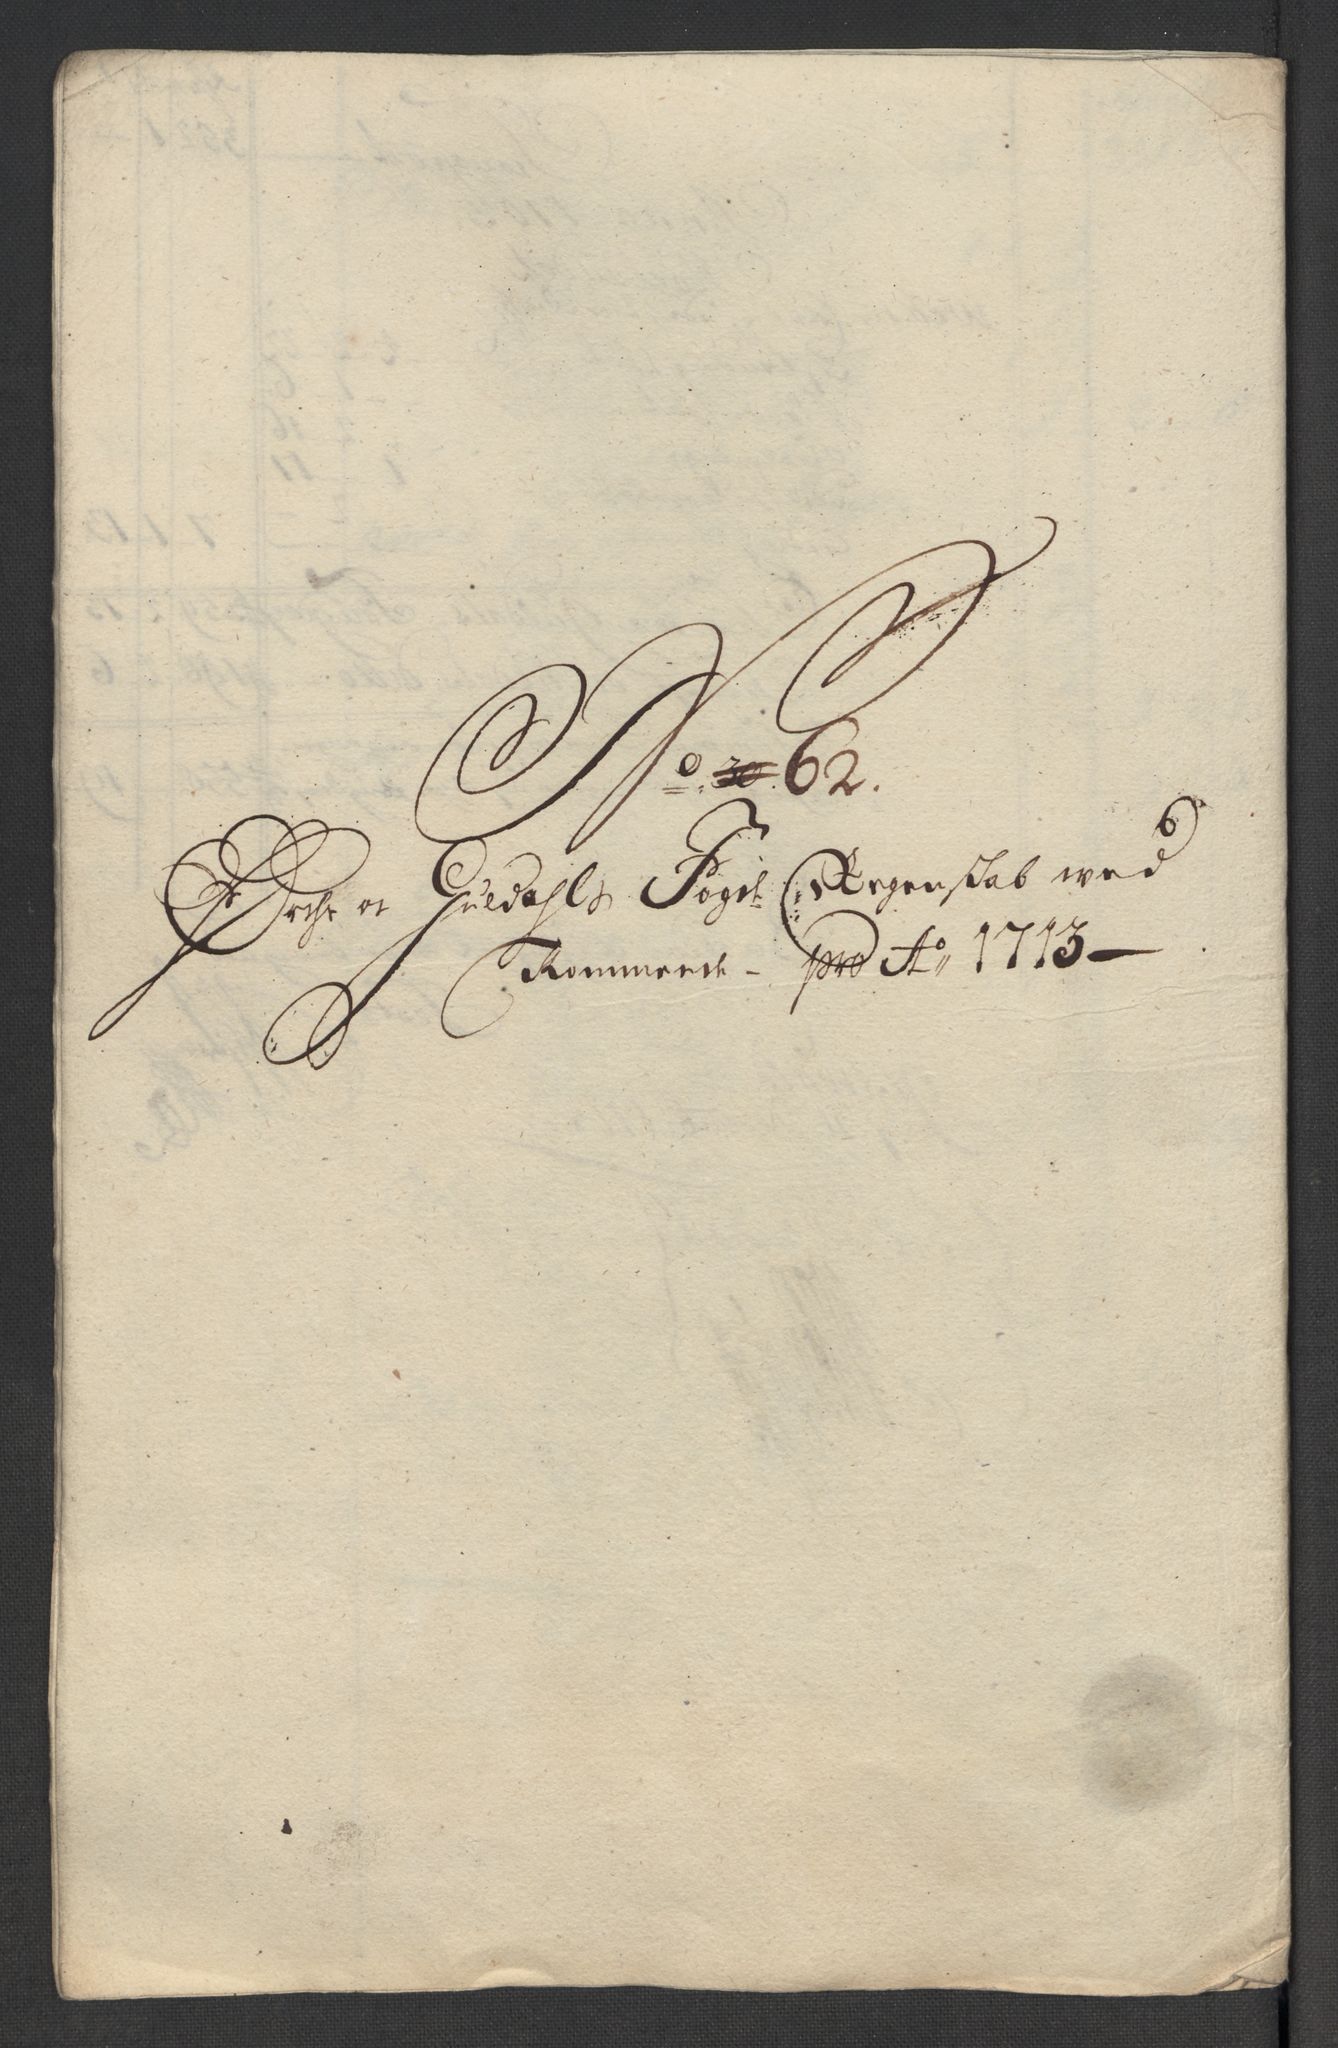 No. 30 62.
Ørche og Guldahls Fogd. Regenskab wed
Kommende - pro Ao 1713 -